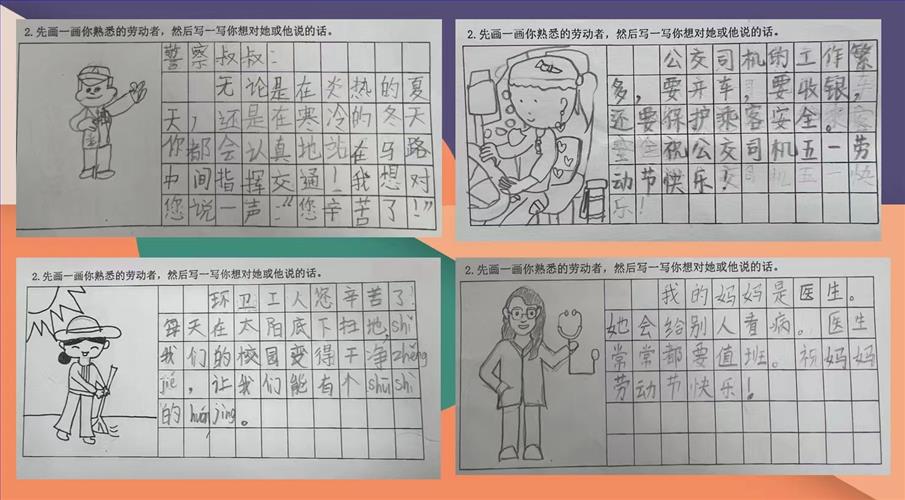 2.先画一画你熟悉的劳动者，然后写一写你想对她或他说的话。
警察叔叔：
无论是在炎热的夏
天，还是在寒冷的冬天
你都会认真地站在马路
中间指挥交通！我想对
您说一声：“您辛苦了！”
2.先画一画你熟悉的劳动者，然后写一写你想对她或他说的话。
公交司机的工作繁
多，要开车，要收银，
还要保护乘客安全。
祝公交司机五一劳
动节快乐！
乐！
2.先画一画你熟悉的劳动者，然后写一写你想对她或他说的话。
环卫工人您辛苦了！
每天在太阳底下扫地，shǐ
我们的校园变得干净zhěng
jié，让我们能有个shūshì
的huánjìng。
2.先画一画你熟悉的劳动者，然后写一写你想对她或他说的话。
我的妈妈是医生。
她会给别人看病。医生
常常都要值班。祝妈妈
劳动节快乐！